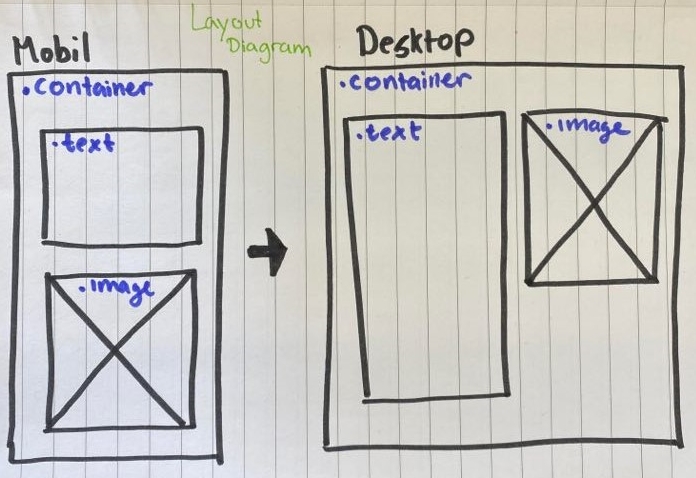 Layout
Diagram
Mobil
.container
.text
.image
Desktop
.container
.text
.image